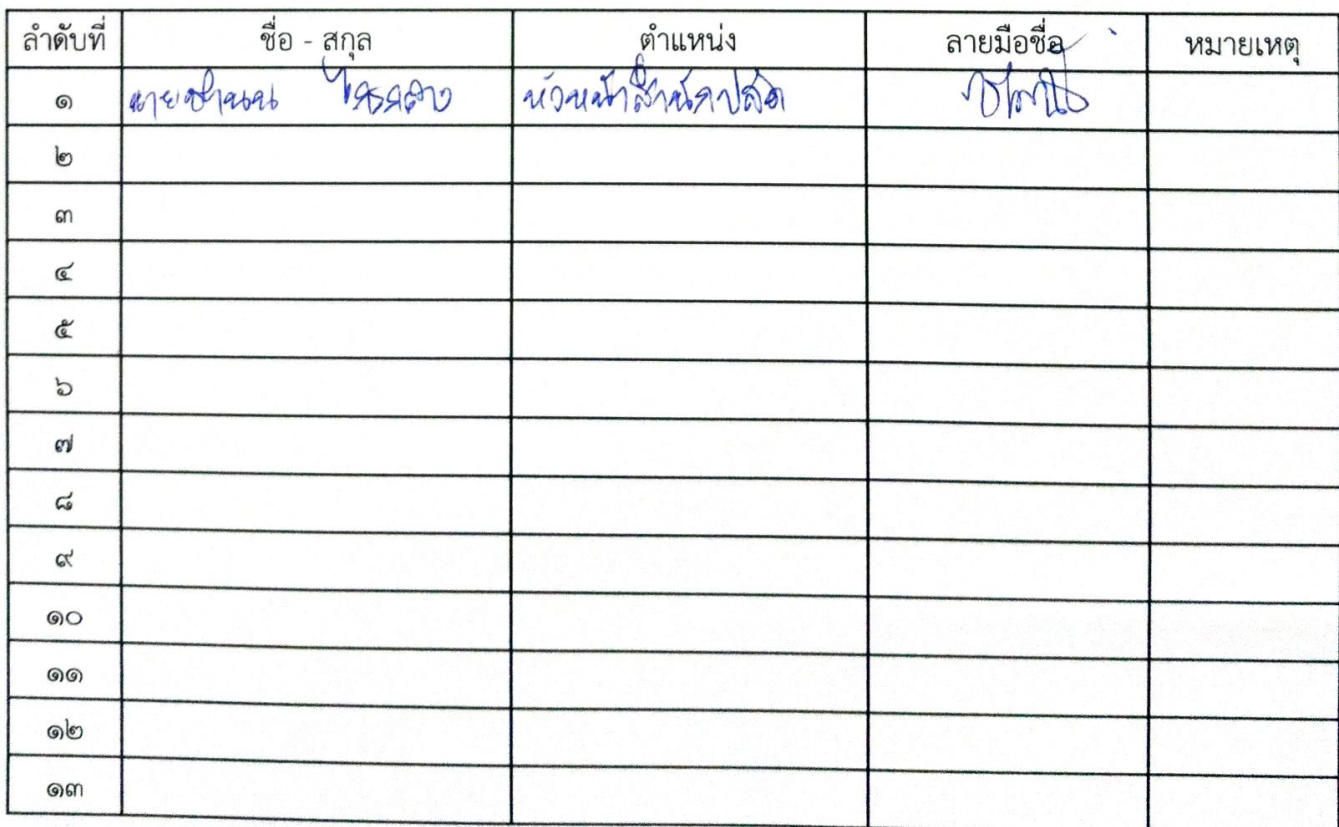 ลำดับที่ ชื่อ - สกุล ตำแหน่ง ลายมือชื่อ หมายเหตุ
๑ นายชำนน หัวหน้าสำนักปลัด
๒
๓
๔
๕
๖
๗
๘
๙
๑๐
๑๑
๑๒
๑๓